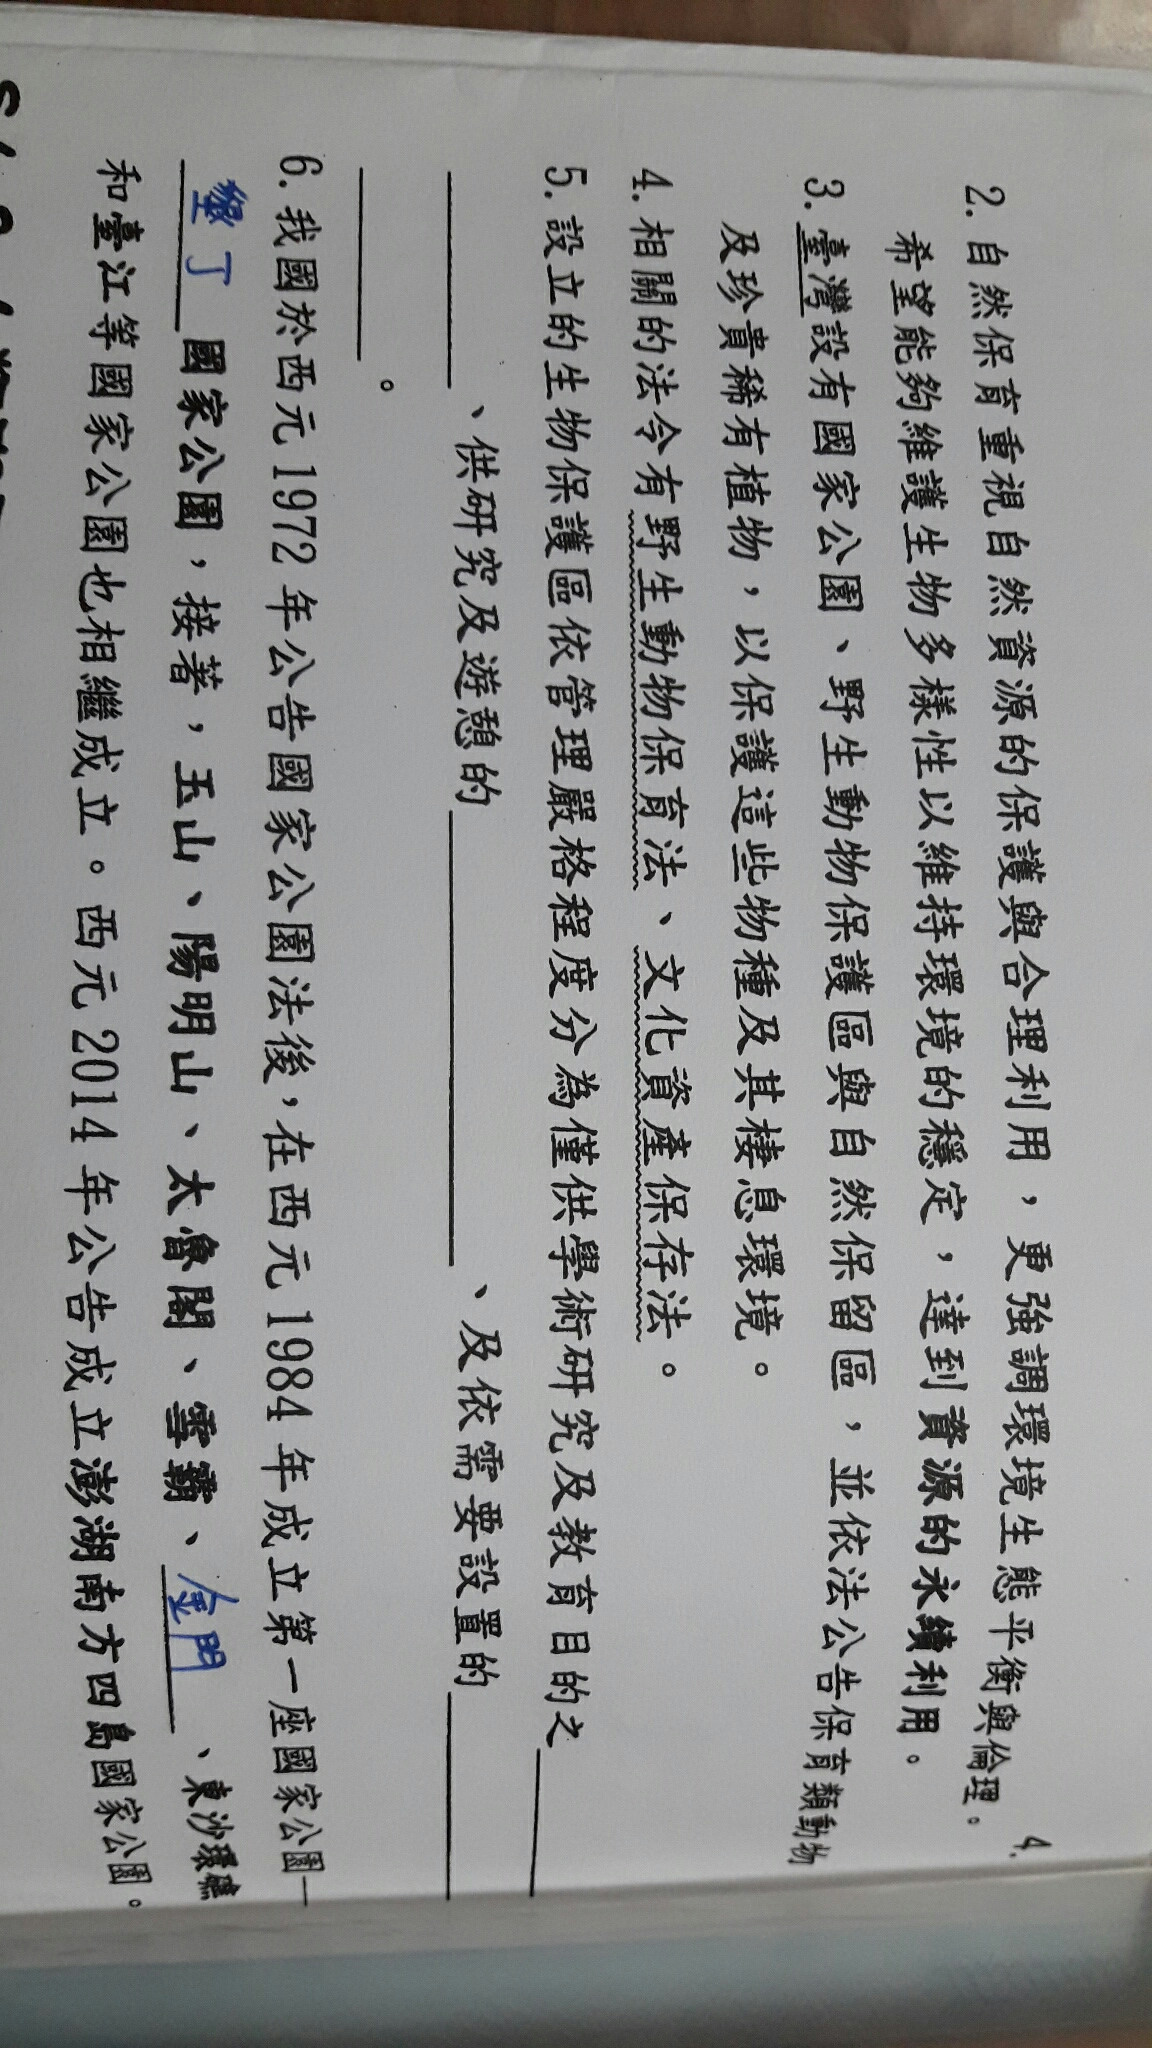 2. 自然保育重視自然資源的保護與合理利用，更強調環境生態平衡與倫理。
希望能夠維護生物多樣性以維持環境的穩定，達到資源的永續利用。
3. 臺灣設有國家公園、野生動物保護區與自然保留區，並依法公告保育類動物
及珍貴稀有植物，以保護這些物種及其棲息環境。
4. 相關的法令有野生動物保育法、文化資產保存法。
5. 設立的生物保護區依管理嚴格程度分為僅供學術研究及教育目的之
、供研究及遊憩的 、及依需要設置的
。
6. 我國於西元1972年公告國家公園法後，在西元1984年成立第一座國家公園—
墾丁 國家公園，接著，玉山、陽明山、太魯閣、雪霸、金門、東沙環礁
和臺江等國家公園也相繼成立。西元2014年公告成立澎湖南方四島國家公園。
4.